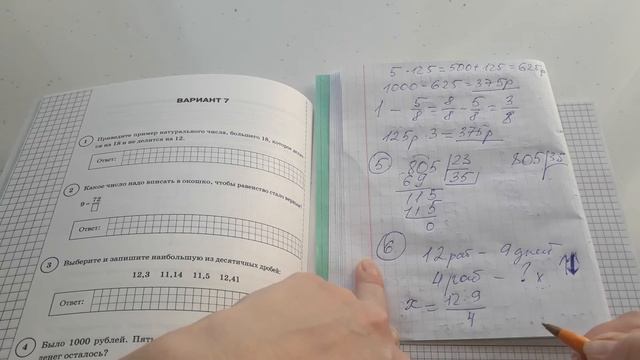 ВАРИАНТ 7
1 Приведите пример натурального числа, большего 18, которое
ся на 18 и не делится на 12.
Ответ:
2 Какое число надо вписать в окошко, чтобы равенство стало верным?
9 = 72/□
Ответ:
3 Выберите и запишите наибольшую из десятичных дробей:
12,3 11,14 11,5 12,41
Ответ:
4 Было 1000 рублей.
денег осталось?
5 · 125 = 500 + 125 = 625р
1000 - 625 = 375р
1 - 5/8 = 8/8 - 5/8 = 3/8
125р · 3 = 375р
5 805 | 23 805 | 35
69 35
115
115
0
6 12 раб – 9 дней
4 раб – ? x
x = 12·9/4